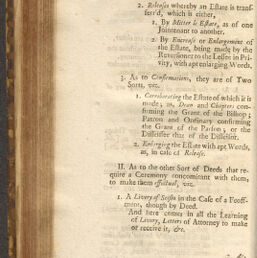 2. Releases whereby an Estate is transferr'd, which is either,
1. By Mitter le Estate, as of one
Jointenant to another.
2. By Encrease or Enlargement of
the Estate, being made by the
Reversioner to the Lessee in Privity, with apt enlarging Words.
3. As to Confirmations, they are of Two
Sorts, viz.
1. Corroborating the Estate of which it is
made; as, Dean and Chapters confirming the Grant of the Bishop;
Patron and Ordinary confirming
the Grant of the Parson; or the
Disseisee that of the Disseisor.
2. Enlarging the Estate with apt Words,
as, in case of Release.
II. As to the other Sort of Deeds that require a Ceremony concomitant with them,
to make them effectual, viz.
1. A Livery of Seisin in the Case of a Feoffment, though by Deed.
And here comes in all the Learning
of Livery, Letters of Attorney to make
or receive it, &c.